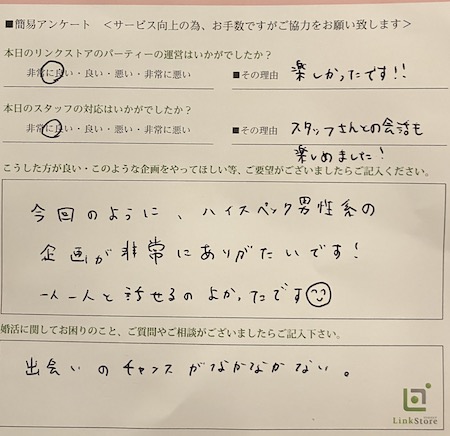 ■簡易アンケート ＜サービス向上の為、お手数ですがご協力をお願い致します＞
本日のリンクストアのパーティーの運営はいかがでしたか？
非常に良い・良い・悪い・非常に悪い ■その理由 楽しかったです!!
本日のスタッフの対応はいかがでしたか？
非常に良い・良い・悪い・非常に悪い ■その理由 スタッフさんとの会話も
楽しめました!
こうした方が良い・このような企画をやってほしい等、ご要望がございましたらご記入ください。
今回のように、ハイスペック男性系の
企画が非常にありがたいです!
一人一人と話せるのよかったです☺
婚活に関してお困りのこと、ご質問やご相談がございましたらご記入下さい。
出会いのチャンスがなかなかない。
LinkStore